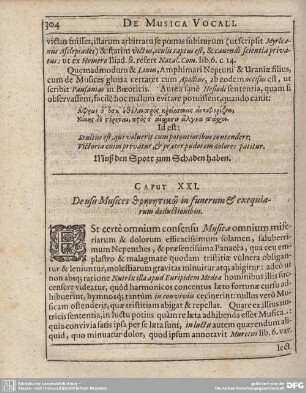 304 DE MUSICA VOCALI.
victus fuisset, illarum arbitratu se pœnas subiturum (ut scripsit Myrleanus Asclepiades) & statim victus, oculis captus est, & canendi scientia privatus: ut ex Homero Iliad. β. refert Natal. Com. lib. 6. c. 14.
Quemadmodum & Linus, Amphimari Neptuni & Uraniæ filius, cum de Musices gloria certaret cum Apolline, ab eodem occisus est, ut scribit Pausanias in Bœoticis. Aurea sanè Hesiodi sententia, quam si observassent, facilè hoc malum evitare potuissent, quando canit:
Id est:
Stultus est, qui voluerit cum potentioribus contendere:
Victoria enim privatur & præter pudorem dolores patitur.
Muß den Spott zum Schaden haben.
CAPUT XXI.
De usu Musices θρηνητικῶ in funerum & exequiarum deductionibus.
EST certè omnium consensu Musica omnium miseriarum & dolorum efficacissimum solamen, saluberrimum Nepenthes, & præsentissima Panacêa, quæ ceu emplastro & malagmate quodam tristitiæ vulnera obligantur & leniuntur, molestiarum gravitas minuitur atq; abigitur: adeò ut non absq; ratione Nutrix illa apud Euripidem Medea hominibus illis succensere videatur, quòd harmonicos concentus læto fortunæ cursu adhibuerint, hymnosq; tantùm in conviviis excitarint: nullus verò Musicam ostenderit, quæ tristitiam abigat & repellat. Quare ex illius nutricis sententia, in luctu potius quàm re læta adhibenda esset Musica: quia convivia satis ipsa per se læta sunt, in luctu autem quærendum aliquid, quo minuatur dolor, quod ipsum annotavit Muretus lib. 6. var.
lect.